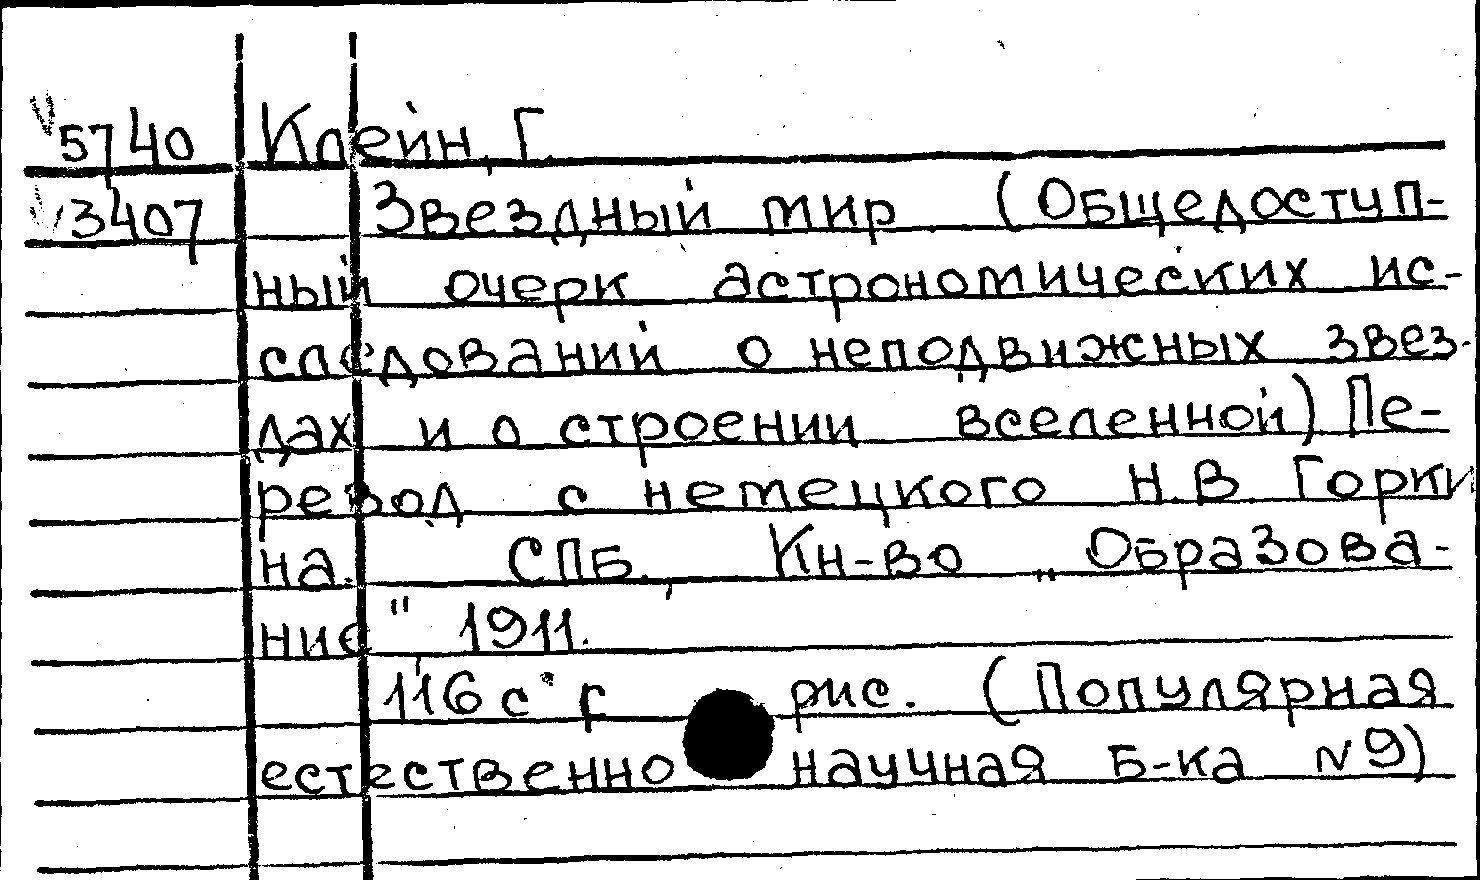 5740 Клейн, Г.
3407 Звездный мир (Общедоступ-
ный очерк астрономических ис-
следований о неподвижных звез-
дах и о строении вселенной) Пе-
ревод с немецкого Н.В. Горки
на. СПБ., Кн-во „Образова-
ние", 1911.
116 с рис. (Популярная
естественно научная Б-ка N9)